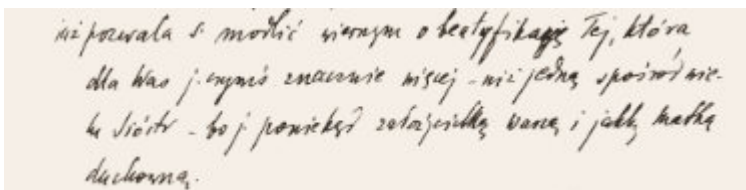 już pozwala s. modlić wiernym o beatyfikację Tej, która
dla Was j. czymś znacznie więcej - niż jedną spośród wie-
lu Sióstr - bo j. poniekąd założycielką waszą i jakby matką
duchowną.